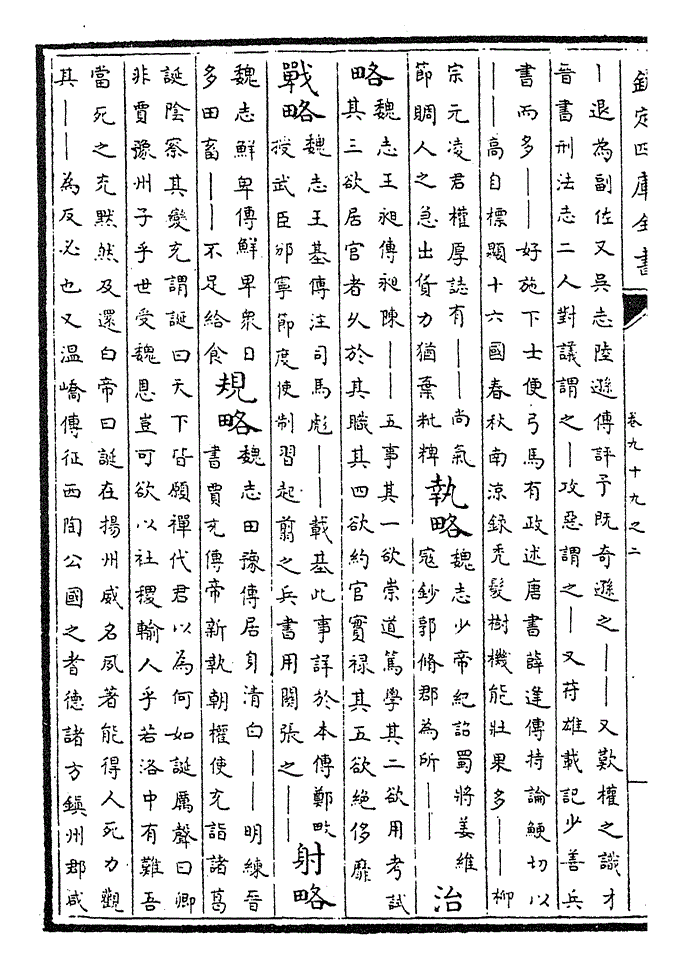 欽定四庫全書
卷九十九之二
丨退為副佐又吳志陸遜傳評予既奇遜之丨丨又歎權之識才
晉書刑法志二人對議謂之丨攻惡謂之丨又苻雄載記少善兵
書而多丨丨好施下士便弓馬有政述唐書薛逢傳持論鯁切以
丨丨高自標顯十六國春秋南涼録禿髮樹機能壯果多丨丨柳
宗元凌君權厚誌有丨丨尚氣
節賙人之急出貨力猶棄粃粺
執略
魏志少帝紀詔蜀將姜維
寇鈔郭脩郡為所丨丨
治
略
魏志王昶傳昶陳丨丨五事其一欲崇道篤學其二欲用考試
其三欲居官者久於其職其四欲約官實禄其五欲絶侈靡
戰略
魏志王基傳注司馬彪丨丨載基此事詳於本傳鄭畋
授武臣邠寧節度使制習起翦之兵書用關張之丨丨
射略
魏志鮮卑傳鮮卑衆日
多田畜丨丨不足給食
規略
魏志田豫傳居身清白丨丨明練晉
書賈充傳帝新執朝權使充詣諸葛
誕陰察其變充謂誕曰天下皆願禪代君以為何如誕厲聲曰卿
非賈豫州子乎世受魏恩豈可欲以社稷輸人乎若洛中有難吾
當死之充黙然及還白帝曰誕在揚州威名夙著能得人死力觀
其丨丨為反必也又温嶠傳征西陶公國之耆德諸方鎮州郡咸